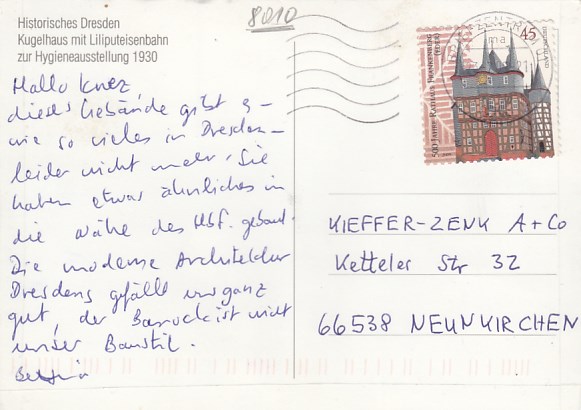 Historisches Dresden
Kugelhaus mit Liliputeisenbahn
zur Hygieneausstellung 1930
8010
45
500 JAHRE RATHAUS FRANKENBERG
(EDER)
Hallo
dieses Gebäude gibt es –
wie so vieles in Dresden –
leider nicht mehr. Sie
haben etwas ähnliches in
die Nähe des Hbf. gebaut.
Die moderne Architektur
Dresdens gefällt uns ganz
gut, der Barock ist nicht
unser Baustil.
KIEFFER-ZENK A+Co
Ketteler Str 32
66538 NEUNKIRCHEN